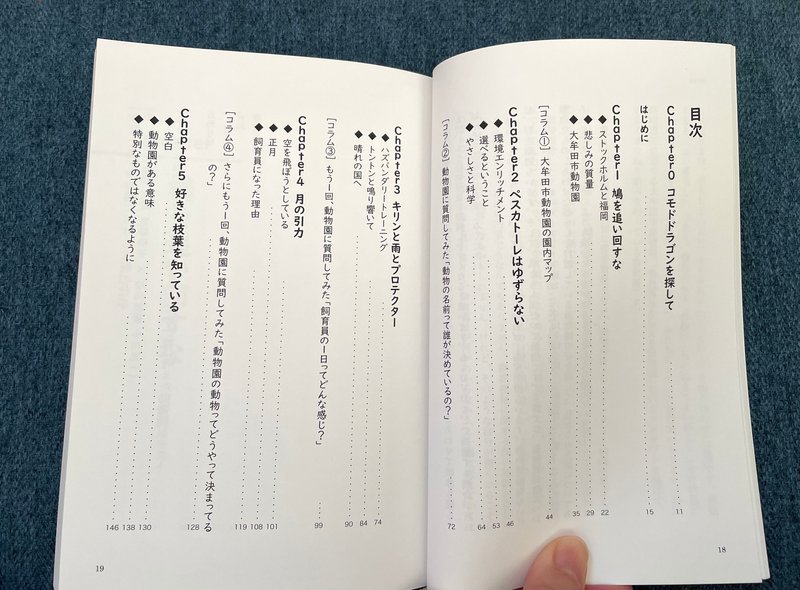 目次
Chapter0 コモドドラゴンを探して 11
はじめに 15
Chapter1 鳩を追い回すな
◆ ストックホルムと福岡 22
◆ 悲しみの質量 29
◆ 大牟田市動物園 35
［コラム①］大牟田市動物園の園内マップ 44
Chapter2 ペスカトーレはゆずらない
◆ 環境エンリッチメント 46
◆ 選べるということ 53
◆ やさしさと科学 64
［コラム②］動物園に質問してみた「動物の名前って誰が決めているの？」 72
18
Chapter3 キリンと雨とプロテクター
◆ ハズバンダリートレーニング 74
◆ トントンと鳴り響いて 84
◆ 晴れの国へ 90
［コラム③］もう一回、動物園に質問してみた「飼育員の一日ってどんな感じ？」 99
Chapter4 月の引力
◆ 空を飛ぼうとしている 101
◆ 正月 108
◆ 飼育員になった理由 119
［コラム④］さらにもう一回、動物園に質問してみた「動物園の動物ってどうやって決まってる
の？」 128
Chapter5 好きな枝葉を知っている
◆ 空白 130
◆ 動物園がある意味 138
◆ 特別なものではなくなるように 146
19